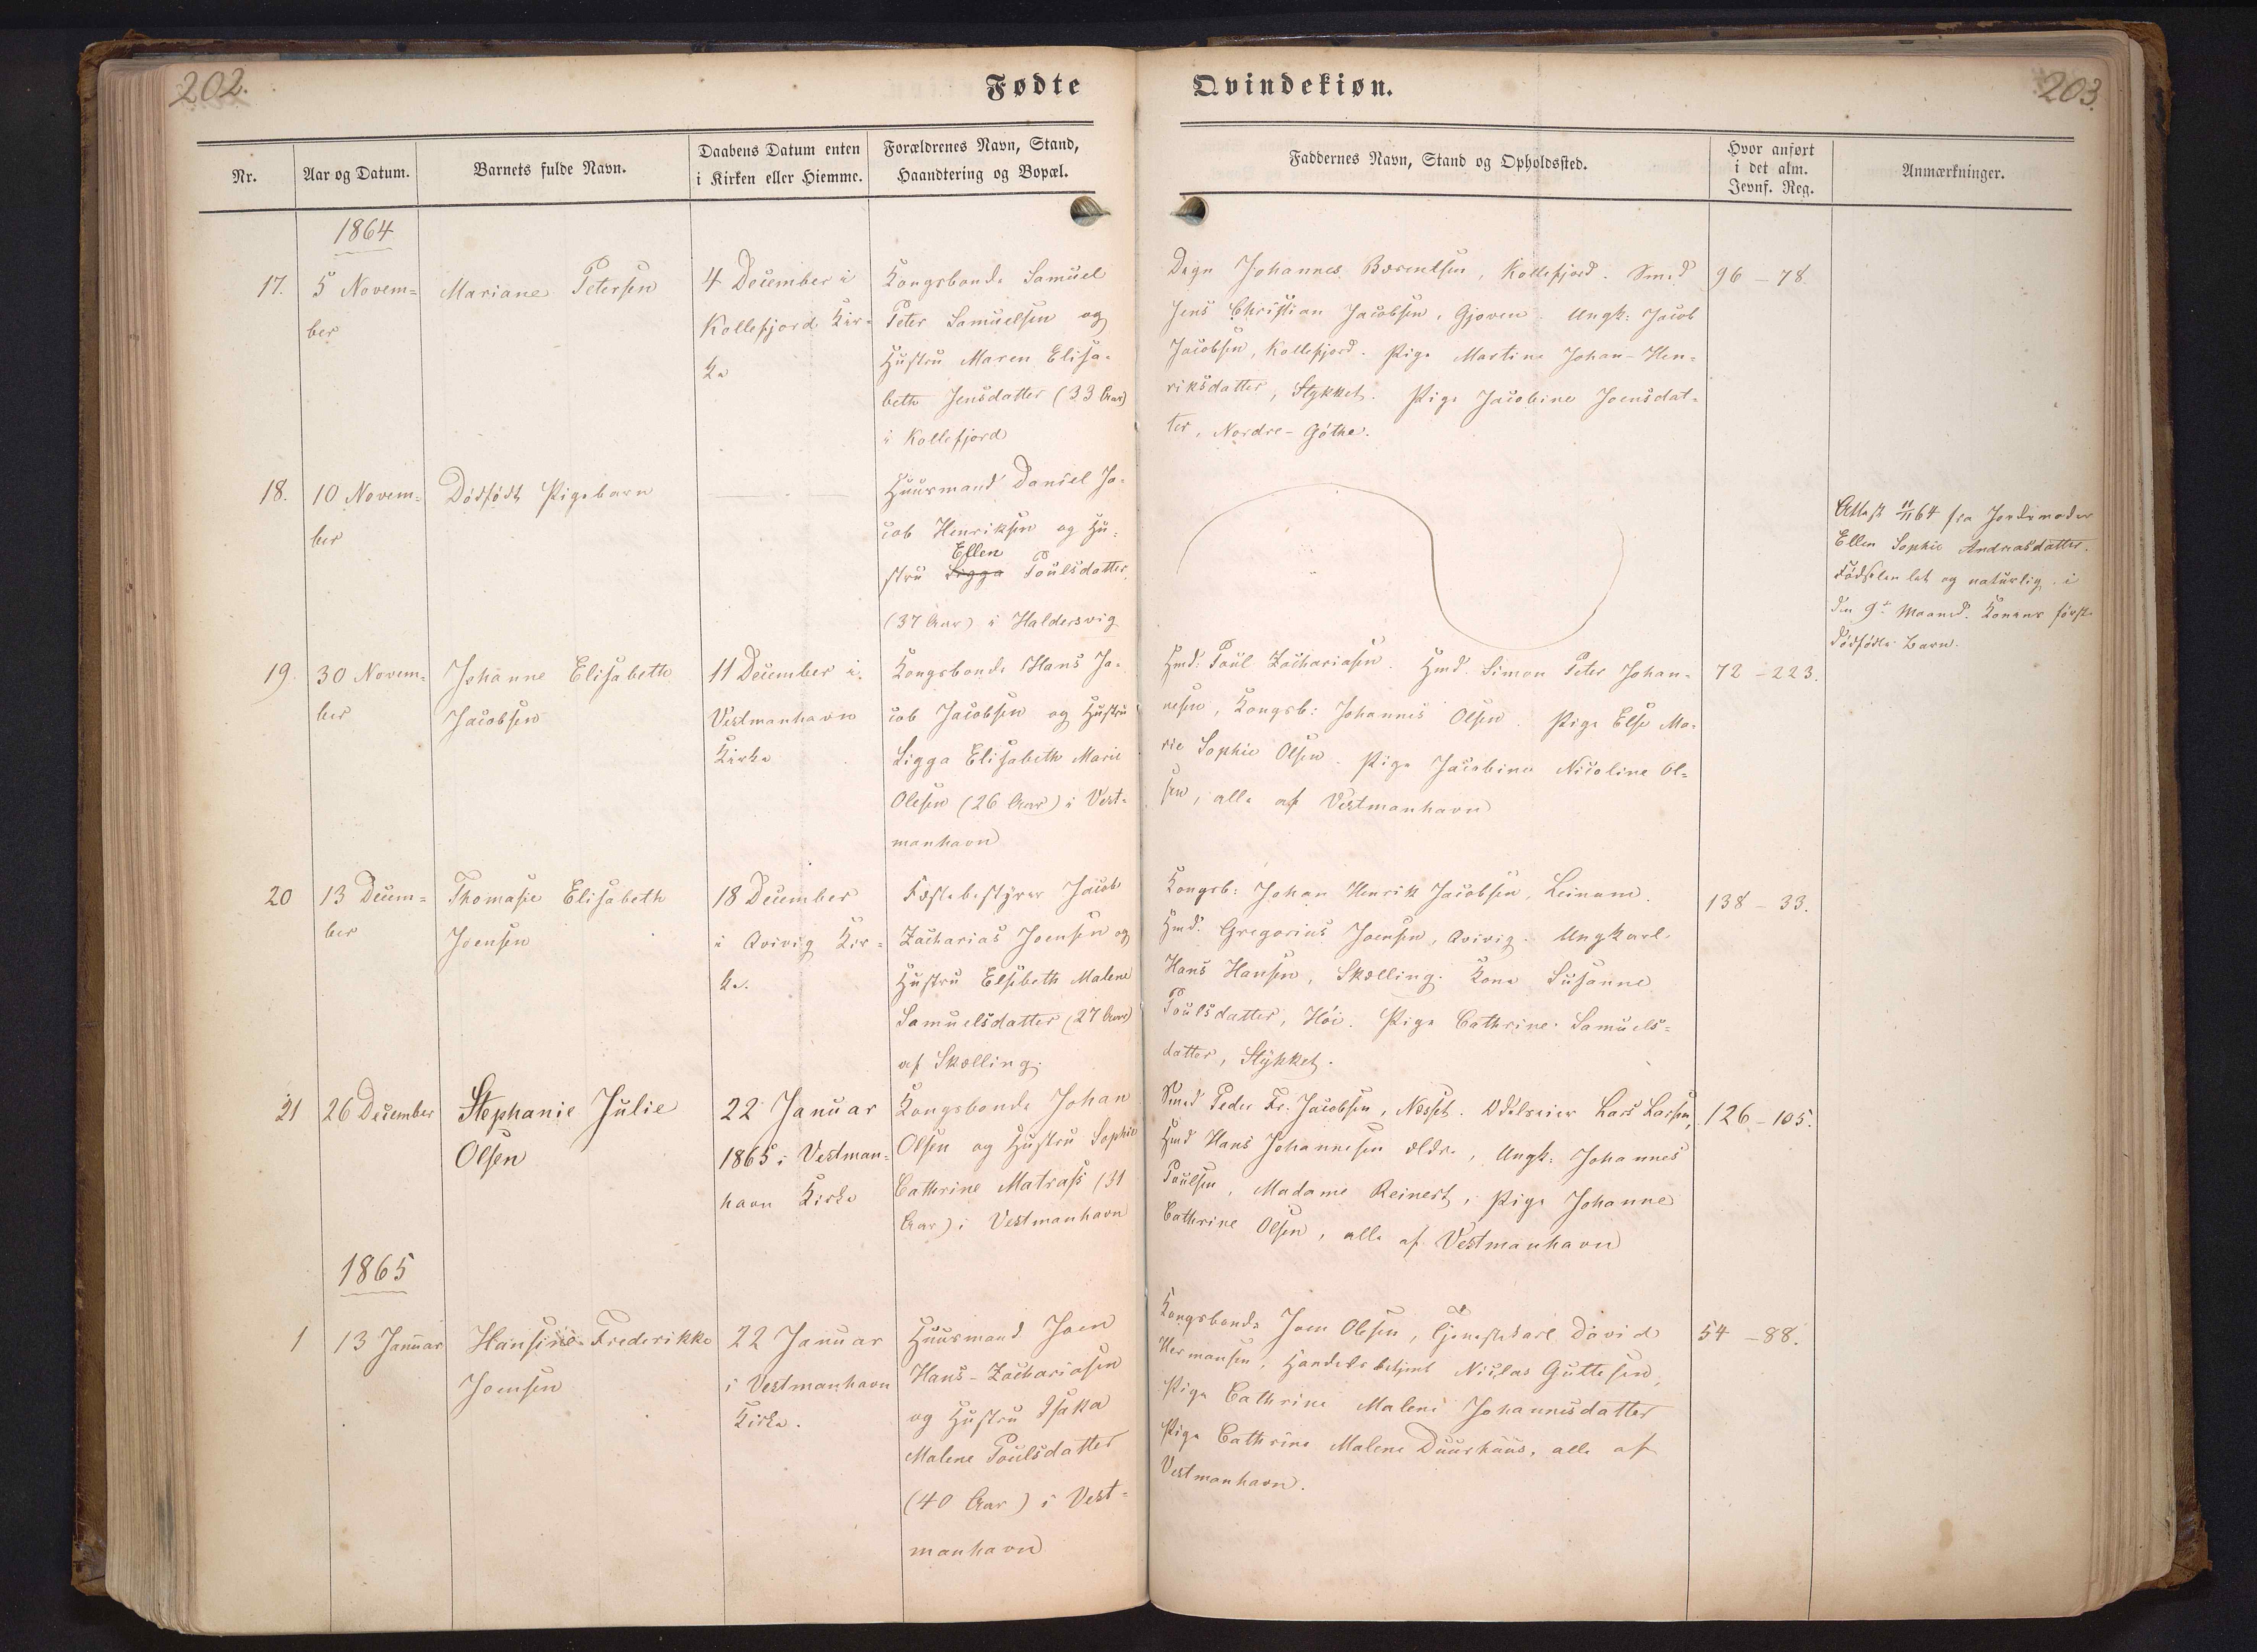 202.
Fødte
Qvindekiøn.
203.
Nr.
Aar og Datum.
Barnets fulde Navn.
Daabens Datum enten
i Kirken eller Hiemme.
Forældrenes Navn, Stand,
Haandtering og Bopæl.
Faddernes Navn, Stand og Opholdssted.
Hvor anført
i det alm.
Jevnf. Reg.
Anmærkninger.
1864
17.
5 Novem=
ber
Mariane Petersen
4 December i
Kollefjord Kir=
ke
Kongsbonde Samuel
Peter Samuelsen og
Hustru Maren Elisa=
beth Jensdatter (33 Aar)
i Kollefjord
Degn Johannes Bærentsen, Kollefjord. Smed
Jens Christian Jacobsen, Gjoven. Ungk: Jacob
Jacobsen, Kollefjord. Pige Martine Johan-Hen=
riksdatter, Stykket. Pige Jacobine Joensdat=
ter, Nordre-Göthe.
96 - 78
18.
10 Novem=
ber
Dödfödt Pigebarn
Huusmand Daniel Ja=
cob Henriksen og Hu=
Ellen
stru Sigga Poulsdatter
(37 Aar) i Haldersvig
Attest 11/11 64 fra Jordemoder
Ellen Sophie Andreasdatter.
Födselen let og naturlig, i
den 9de Maaned. Konens förste
dödfödte Barn.
19.
30 Novem=
ber
Johanne Elisabeth
Jacobsen
11 December i
Vestmanhavn
Kirke
Kongsbonde Hans Ja=
cob Jacobsen og Hustru
Sigga Elisabeth Marie
Olesen (26 Aar) i Vest=
manhavn
Hmd: Poul Zachariasen. Hmd. Simon Peter Johan=
nesen, Kongsb: Johannes Olsen. Pige Else Ma=
rie Sophie Olsen. Pige Jacobine Nicoline Ol=
sen, alle af Vestmanhavn
72 - 223.
20
13 Decem=
ber
Thomasie Elisabeth
Joensen
18 December
i Qvivig Kir=
ke.
Fæstebestyrer Jacob
Zacharias Joensen og
Hustru Elsebeth Malene
Samuelsdatter (27 Aar)
af Skælling.
Kongsb: Johan Henrik Jacobsen, Leinum.
Hmd. Gregorius Joensen, Qvivig. Ungkarl
Hans Hansen, Skælling. Kone Susanne
Poulsdatter, Höi. Pige Cathrine Samuels=
datter, Stykket.
138 - 33.
21
26 December
Stephanie Julie
Olsen
22 Januar
1865 i Vestman=
havn Kirke
Kongsbonde Johan
Olsen og Hustru Sophie
Cathrine Matrass (31
Aar) i Vestmanhavn
Smed Peder Fr. Jacobsen, Næsset. Odelseier Lars Larsen,
Hmd Hans Johannesen ældre, Ungk: Johannes
Poulsen, Madame Reinert, Pige Johanne
Cathrine Olsen, alle af Vestmanhavn
126 - 105.
1865
1
13 Januar
Hansine Frederikke
Joensen
22 Januar
i Vestmanhavn
Kirke.
Huusmand Joen
Hans-Zachariasen
og Hustru Isaka
Malene Poulsdatter
(40 Aar) i Vest=
manhavn
Kongsbonde Joen Olesen, Tjenestekarl David
Hermansen, Handelsbetjent Niclas Guttesen,
Pige Cathrine Malene Johannesdatter
Pige Cathrine Malene Duurhuus, alle af
Vestmanhavn.
54 - 88.